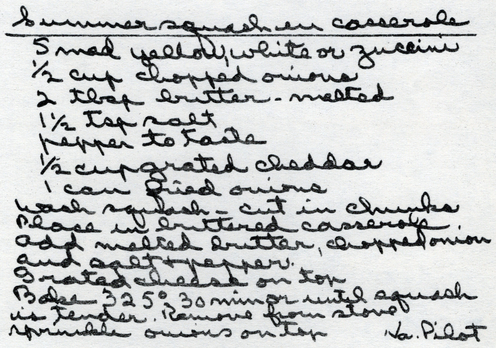 Summer squash en casserole
5 med yellow, white or zuccini
1/2 cup chopped onions
2 tbsp butter - melted
1 1/2 tsp salt
pepper to taste
1/2 cup grated cheddar
1 can fried onions
Wash squash - cut in chunks
Place in buttered casserole
add melted butter, chopped onion
and salt + pepper.
Grated cheese on top
Bake 325° 30 min or until squash
is tender. Remove from stove
sprinkle onions on top Va. Pilot